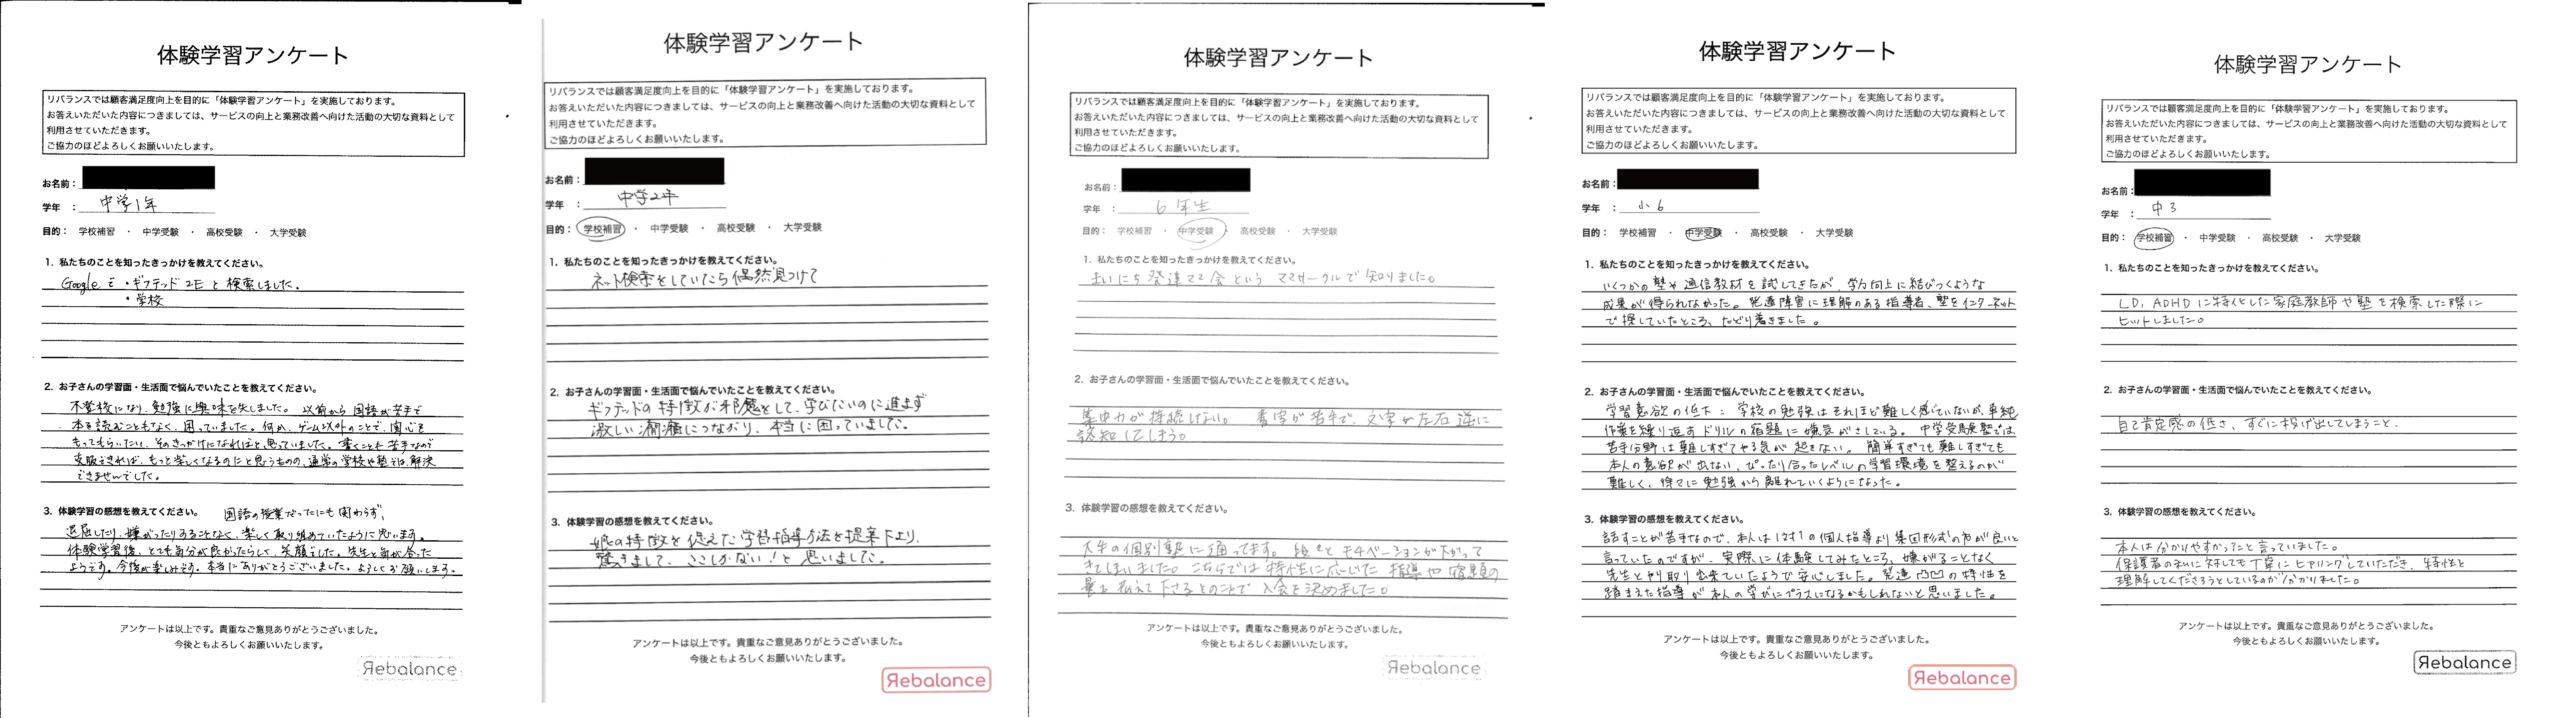 体験学習アンケート
リバランスでは顧客満足度向上を目的に「体験学習アンケート」を実施しております。
お答えいただいた内容につきましては、サービスの向上と業務改善へ向けた活動の大切な資料として
利用させていただきます。
ご協力のほどよろしくお願いいたします。
お名前：
学年 ： 中学1年
目的： 学校補習 ・ 中学受験 ・ 高校受験 ・ 大学受験
1. 私たちのことを知ったきっかけを教えてください。
Googleで ・ギフテッド 2E と検索しました。
・学校
2. お子さんの学習面・生活面で悩んでいたことを教えてください。
不登校になり、勉強に興味を失しました。以前から国語が苦手で
本を読むこともなく、困っていました。何か、ゲーム以外のことで、関心を
もってもらいたい、そのきっかけになればと思っていました。書くことも苦手なので
克服できれば、もっと楽しくなるのにと思うものの、通常の学校や塾では、解決
できませんでした。
3. 体験学習の感想を教えてください。 国語の授業だったにも関わらず、
退屈したり、嫌がったりすることなく、楽しく取り組めていたように思います。
体験学習後、とても気分が良かったらしく、笑顔でした。先生と気が合った
ようです。今後が楽しみです。本当にありがとうございました。よろしくお願いします。
アンケートは以上です。貴重なご意見ありがとうございました。
今後ともよろしくお願いいたします。
Rebalance
体験学習アンケート
リバランスでは顧客満足度向上を目的に「体験学習アンケート」を実施しております。
お答えいただいた内容につきましては、サービスの向上と業務改善へ向けた活動の大切な資料として
利用させていただきます。
ご協力のほどよろしくお願いいたします。
お名前：
学年 ： 中学2年
目的： 学校補習 ・ 中学受験 ・ 高校受験 ・ 大学受験
1. 私たちのことを知ったきっかけを教えてください。
ネット検索をしていたら偶然見つけて
2. お子さんの学習面・生活面で悩んでいたことを教えてください。
ギフテッドの特徴が邪魔をして、学びたいのに進まず
激しい癇癪につながり、本当に困っていました。
3. 体験学習の感想を教えてください。
娘の特徴を捉えた学習指導方法を提案下さり、
驚きまして、ここしかない！と思いました。
アンケートは以上です。貴重なご意見ありがとうございました。
今後ともよろしくお願いいたします。
Rebalance
体験学習アンケート
リバランスでは顧客満足度向上を目的に「体験学習アンケート」を実施しております。
お答えいただいた内容につきましては、サービスの向上と業務改善へ向けた活動の大切な資料として
利用させていただきます。
ご協力のほどよろしくお願いいたします。
お名前：
学年 ： 6年生
目的： 学校補習 ・ 中学受験 ・ 高校受験 ・ 大学受験
1. 私たちのことを知ったきっかけを教えてください。
まいにち発達ママ会という ママサークルで知りました。
2. お子さんの学習面・生活面で悩んでいたことを教えてください。
集中力が持続しない。 書字が苦手で、文字が左右逆に
認知してしまう。
3. 体験学習の感想を教えてください。
大手の個別塾に通ってます。 段々とモチベーションが下がって
きてしまいました。こちらでは特性に応じた 指導や宿題の
量も 教えて下さるとのことで 入会を決めました。
アンケートは以上です。貴重なご意見ありがとうございました。
今後ともよろしくお願いいたします。
Rebalance
体験学習アンケート
リバランスでは顧客満足度向上を目的に「体験学習アンケート」を実施しております。
お答えいただいた内容につきましては、サービスの向上と業務改善へ向けた活動の大切な資料として
利用させていただきます。
ご協力のほどよろしくお願いいたします。
お名前：
学年 ： 小6
目的： 学校補習 ・ 中学受験 ・ 高校受験 ・ 大学受験
1. 私たちのことを知ったきっかけを教えてください。
いくつかの塾や通信教材を試してきたが、学力向上に結びつくような
成果が得られなかった。発達障害に理解のある指導者、塾をインターネット
で探していたところ、たどり着きました。
2. お子さんの学習面・生活面で悩んでいたことを教えてください。
学習意欲の低下：学校の勉強はそれほど難しく感じていないが、単純
作業を繰り返すドリルの宿題に嫌気がさしている。中学受験塾では、
苦手分野は難しすぎてやる気が起きない。簡単すぎても難しすぎても
本人の意欲が出ない、ぴったり合ったレベルの学習環境を整えるのが
難しく、徐々に勉強から離れていくようになった。
3. 体験学習の感想を教えてください。
話すことが苦手なので、本人は1対1の個人指導より集団形式の方が良いと
言っていたのですが、実際に体験してみたところ、嫌がることなく
先生とやり取り出来ていたようで安心しました。発達凸凹の特性を
踏まえた指導が本人の学びにプラスになるかもしれないと思いました。
アンケートは以上です。貴重なご意見ありがとうございました。
今後ともよろしくお願いいたします。
Rebalance
体験学習アンケート
リバランスでは顧客満足度向上を目的に「体験学習アンケート」を実施しております。
お答えいただいた内容につきましては、サービスの向上と業務改善へ向けた活動の大切な資料として
利用させていただきます。
ご協力のほどよろしくお願いいたします。
お名前：
学年 ： 中3
目的： 学校補習 ・ 中学受験 ・ 高校受験 ・ 大学受験
1. 私たちのことを知ったきっかけを教えてください。
LD, ADHDに特化とした家庭教師や塾を検索した際に
ヒットしました。
2. お子さんの学習面・生活面で悩んでいたことを教えてください。
自己肯定感の低さ、すぐに投げ出してしまうこと。
3. 体験学習の感想を教えてください。
本人は分かりやすかったと言っていました。
保護者のまいに対しても丁寧にヒアリングしていただき、特性と
理解してくださろうとしているのが分かりました。
アンケートは以上です。貴重なご意見ありがとうございました。
今後ともよろしくお願いいたします。
Rebalance